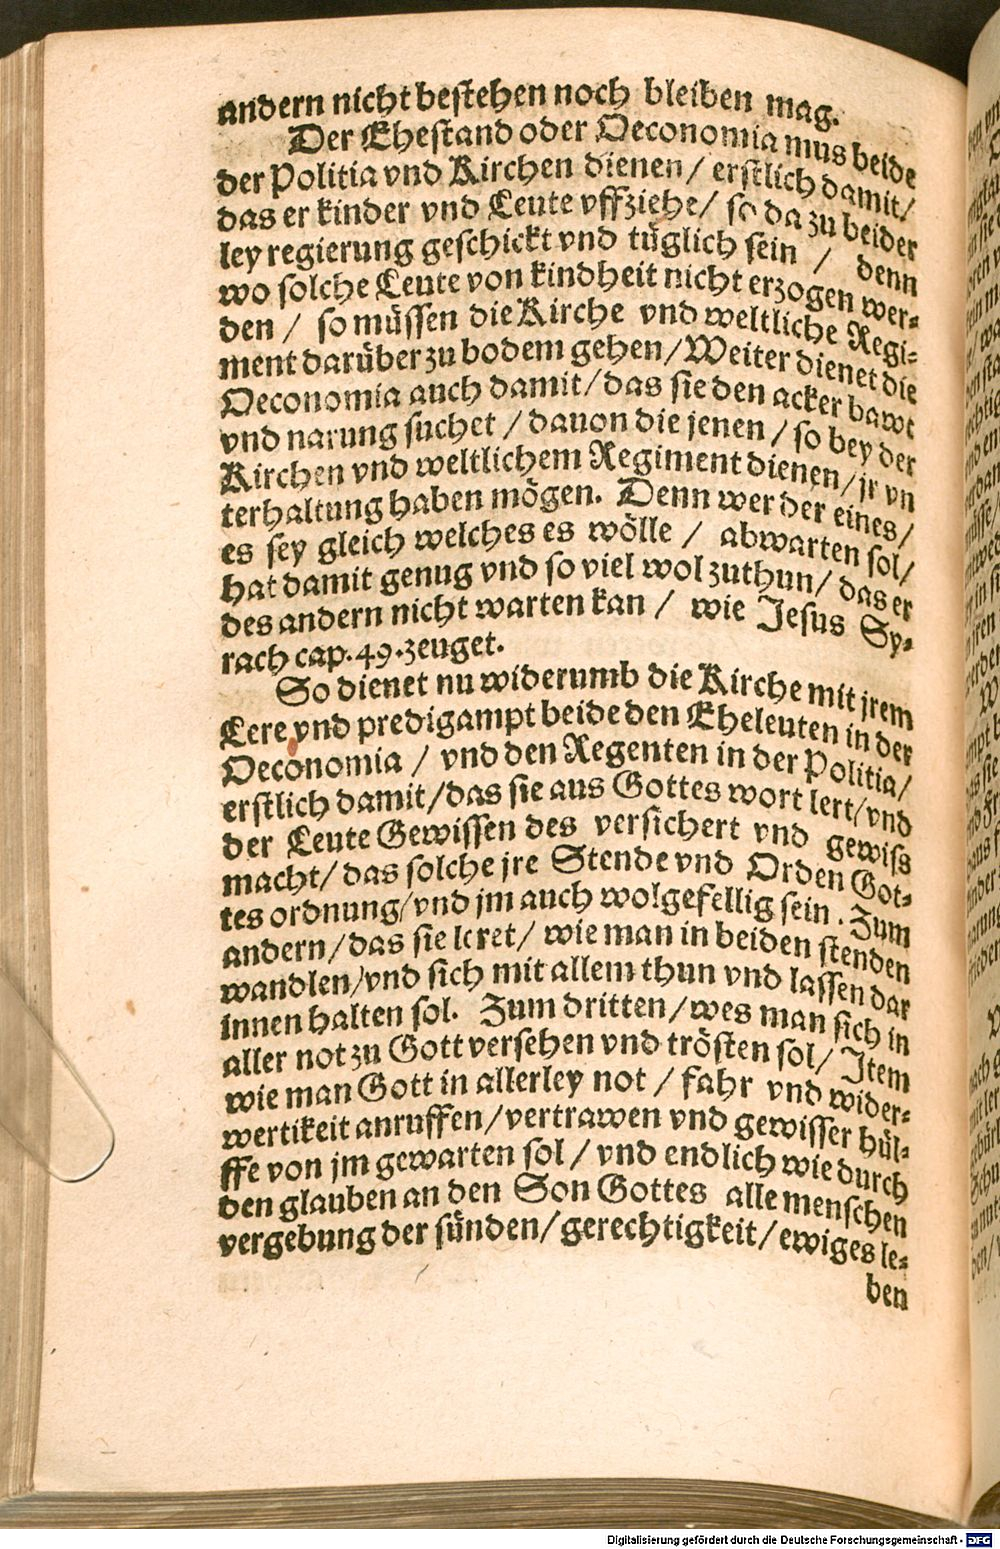 andern nicht bestehen noch bleiben mag.
Der Ehestand oder Oeconomia mus beide
der Politia vnd Kirchen dienen / erstlich damit /
das er kinder vnd Leute vffziehe / so da zu beider
ley regierung geschickt vnd tüglich sein / denn
wo solche Leute von kindheit nicht erzogen wer⸗
den / so müssen die Kirche vnd weltliche Regi⸗
ment darüber zu bodem gehen / Weiter dienet die
Oeconomia auch damit / das sie den acker bawt
vnd narung suchet / dauon die jenen / so bey der
Kirchen vnd weltlichem Regiment dienen / jr vn
terhaltung haben mögen. Denn wer der eines /
es sey gleich welches es wölle / abwarten sol /
hat damit genug vnd so viel wol zuthun / das er
des andern nicht warten kan / wie Jesus Sy⸗
rach cap. 49. zeuget.
So dienet nu widerumb die Kirche mit jrem
Lere vnd predigampt beide den Eheleuten in der
Oeconomia / vnd den Regenten in der Politia /
erstlich damit / das sie aus Gottes wort lert / vnd
der Leute Gewissen des versichert vnd gewiss
macht / das solche jre Stende vnd Orden Got⸗
tes ordnung / vnd jm auch wolgefellig sein. Zum
andern / das sie leret / wie man in beiden stenden
wandlen / vnd sich mit allem thun vnd lassen dar
innen halten sol. Zum dritten / wes man sich in
aller not zu Gott versehen vnd trösten sol / Item
wie man Gott in allerley not / fahr vnd wider⸗
wertikeit anruffen / vertrawen vnd gewisser hül⸗
ffe von jm gewarten sol / vnd endlich wie durch
den glauben an den Son Gottes alle menschen
vergebung der sünden / gerechtigkeit / ewiges le⸗
ben
Digitalisierung gefördert durch die Deutsche Forschungsgemeinschaft - DFG